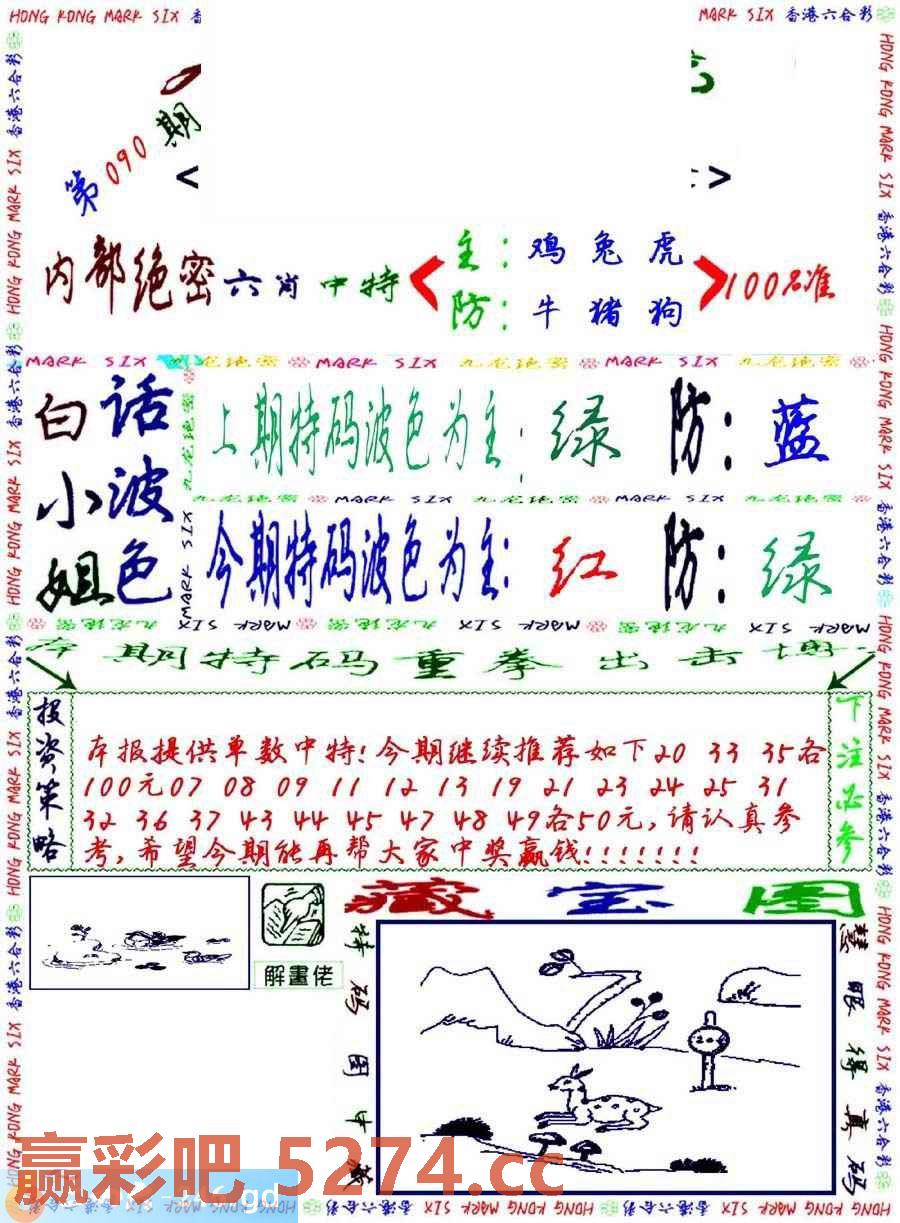 HONG KONG MARK SIX 香
MARK SIX 香港六合彩
第090期
< >
内部绝密六肖中特
主：鸡兔虎
防：牛猪狗
100%准
MARK SIX 九龙绝密 MARK SIX 九龙绝密 MARK SIX 九龙绝密
白话
小波
姐色
上期特码波色为主：绿 防：蓝
九龙绝密 MARK SIX 九龙绝密 MARK SIX 九龙绝密
今期特码波色为主：红 防：绿
九龙绝密 MARK SIX 九龙绝密 MARK SIX 九龙绝密 MARK SIX
本期特码重拳出击博
投资策略
本报提供单数中特！今期继续推荐如下20 33 35各
100元07 08 09 11 12 13 19 21 23 24 25 31
32 36 37 43 44 45 47 48 49各50元，请认真参
考，希望今期能再帮大家中奖赢钱！！！！！！！
下注必参
解畫佬
藏宝图
特码图中藏
慧眼得真码
赢彩吧 5274.cc
HONG KONG MARK SIX 香港六合彩